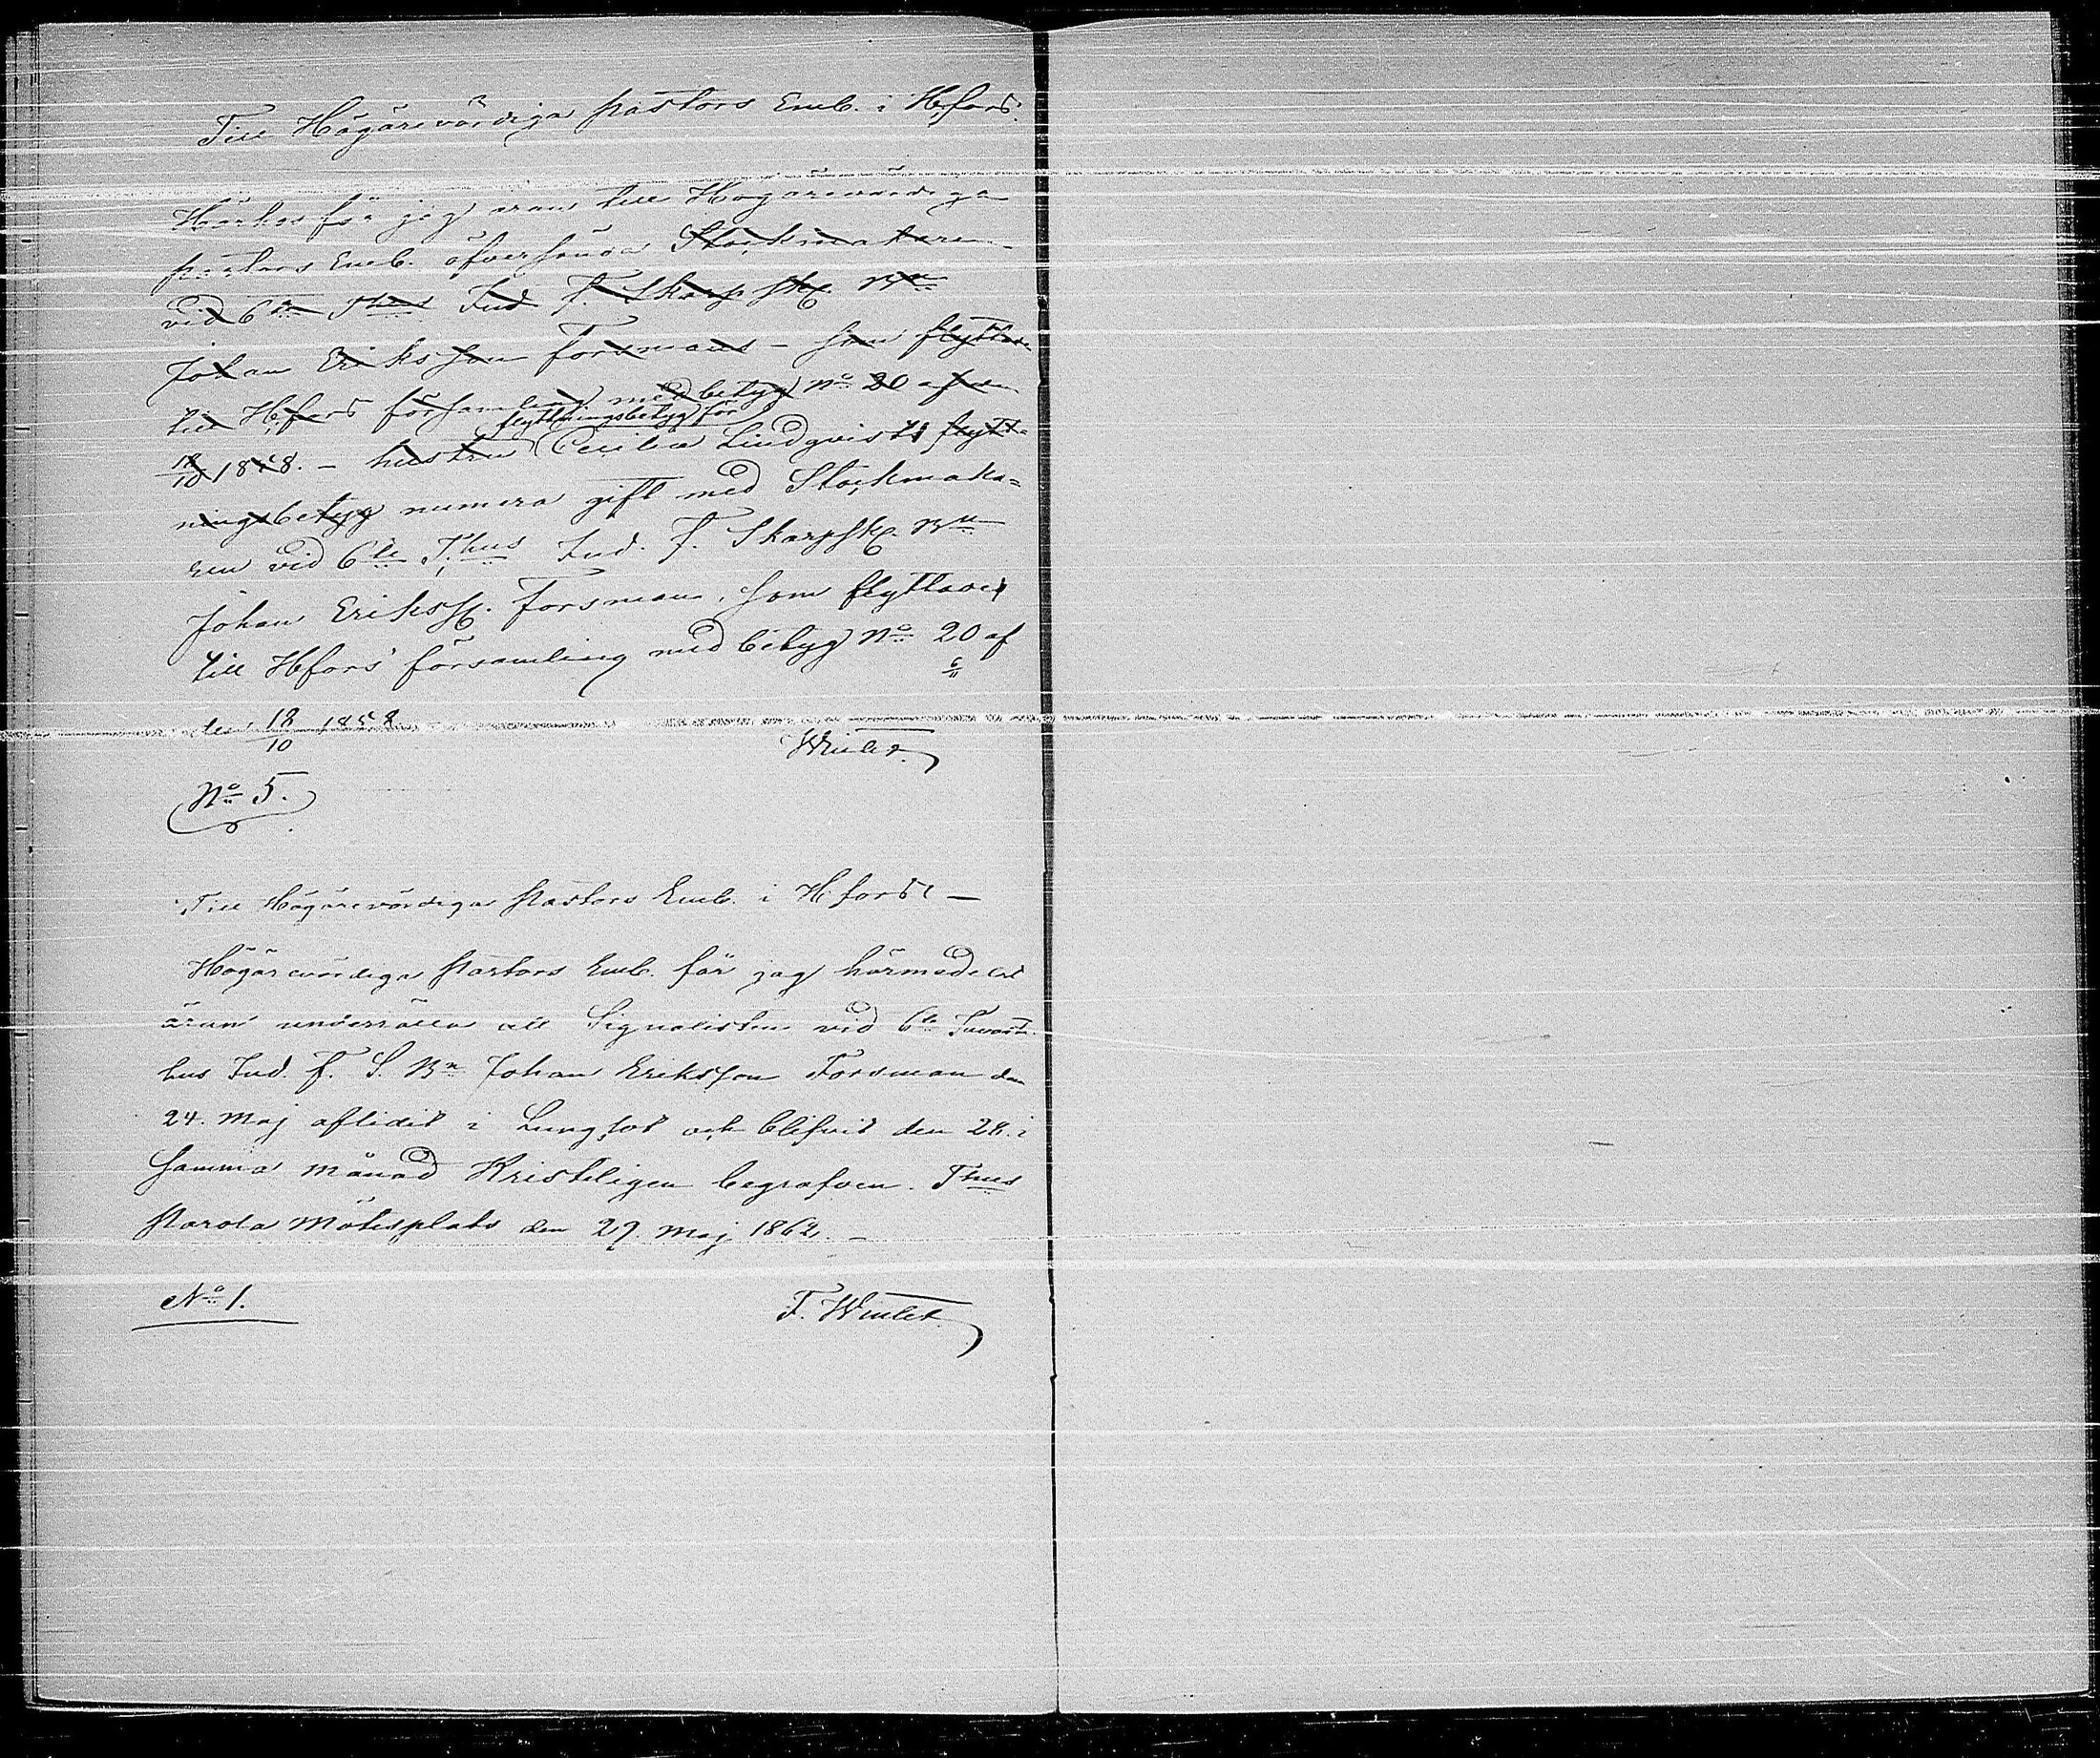 Till Högärevördiga Pastors Emb. i H.fors.
Härhos får jag äran till Högärevördiga
Pastors Emb. öfversända Stockmakaren
vid 6te Thus Ind. F. Skarpsk. Bn
Johan Eriksson Forsmans - som flyttade
till H.fors församling med betyg No 20 af den
18/10 1858. - hustru Cecilia Lindqvists flytt-
flyttningsbetyg för
ningsbetyg numera gift med Stockmaka=
ren vid 6te T.hus Ind. F. Skarpsk. Bn
Johan Erikss. Forsman, som flyttade
till Hfors församling med betyg No 20 af
den 18/10 1858
Winter
No 5.
Till Högärevördiga Pastors Emb. i H.fors -
Högärevördiga Pastors Emb. får jag härmedelst
äran underrätta att Signalisten vid 6te Tavast-
hus Ind. F. S. Bn Johan Eriksson Forsman den
24. Maj aflidit i Lungsot och blifvit den 28. i
samma månad Kristeligen begrafven. Thus
Parola Mötesplats den 29. Maj 1862. -
No 1.
F. Winter